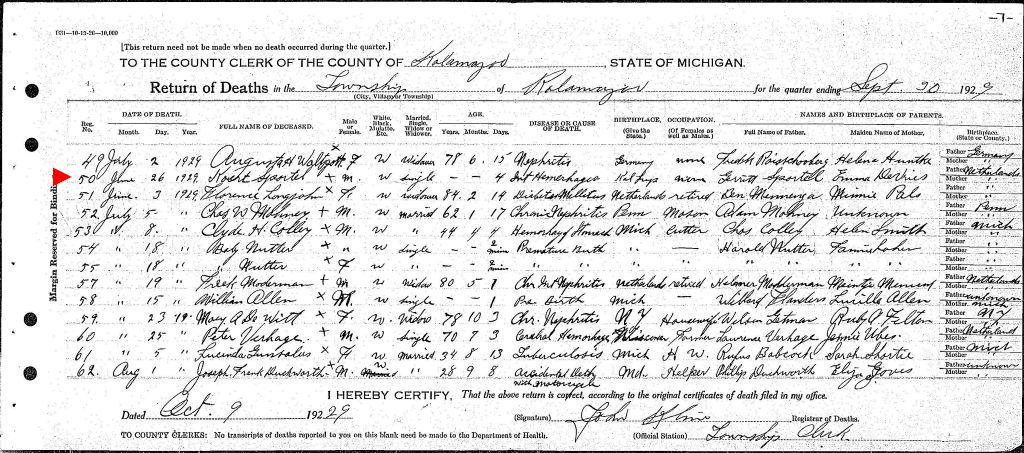 —7—
D31—10-15-26—10,000
[This return need not be made when no death occurred during the quarter.]
TO THE COUNTY CLERK OF THE COUNTY OF Kalamazoo, STATE OF MICHIGAN.
Return of Deaths in the Township of Kalamazoo for the quarter ending Sept. 30 1929
(City, Village or Township)
Reg. No. DATE OF DEATH. Month. Day. Year. FULL NAME OF DECEASED. Male or Female. White, Black, Mulatto, Etc. Married, Single, Widow or Widower. AGE. Years. Months. Days. DISEASE OR CAUSE OF DEATH. BIRTHPLACE, (Give the State.) OCCUPATION. (Of Females as well as Males.) NAMES AND BIRTHPLACE OF PARENTS. Full Name of Father. Maiden Name of Mother. Birthplace. (State or County.)
49 July 2 1929 Augusta H x F. W Widow 78 6 15 Nephritis Germany none Helena Father Germany Mother "
50 June 26 1929 + M. W single – – 4 Int Hemorhages none Gerritt Emma Father Netherlands Mother "
51 June 3 1929 Florence x F. W widower 84 2 19 Diabetes Mellitus Netherlands retired Ben Minnie Father " Mother "
52 July 5 " Chas W Mohney + M. W married 62 1 17 Chronic Nephritis Penn Mason Adam Mohney Unknown Father Penn Mother "
53 " 8. " Clyde H. Colley x M. W " 44 4 4 Hemorhage Stomach Mich Cutter Chas Colley Helen Smith Father Mich Mother "
54 " 18 " Baby Nutter x " W single – – 2 min Premature Birth " — Harold Nutter Father " Mother "
55 " 18 " " Nutter x F. W " – – 2 min " " " " " " " Father " Mother "
57 " 19 " Freek Moderman + M W Widow 80 5 1 Chr Int Nephritis Netherlands retired Father Netherlands Mother "
58 " 15 " William Allen x M. W Single – – 1 Pre Birth Mich – Willard Flanders Lucille Allen Father unknown Mother Mich
59 " 23 19" Mary A De Witt x F. W. Widow 78 10 3 Chr. Nephritis N Y Housewife Wilson Ruby A Felton Father N Y Mother "
60 " 25 " Peter Verhage + M. W Single 70 7 3 Cerebral Hemorhage Farmer Lawrence Verhage Father Netherland Mother "
61 " 5 " Lucinda x F. W Married 34 8 13 Tuberculosis Mich H W. Rufus Babcock Sarah Father Mich Mother "
62. Aug 1 " Joseph Frank Duckworth x M. W " 28 9 8 Accidental Death with motorcycle Mch Helper Phillip Duckworth Eliza Father unknown Mother "
Margin Reserved for Binding
I HEREBY CERTIFY, That the above return is correct, according to the original certificates of death filed in my office.
Dated Oct. 9 192 29
(Signature) John Registrar of Deaths.
TO COUNTY CLERKS: No transcripts of deaths reported to you on this blank need be made to the Department of Health.
(Official Station) Township Clerk